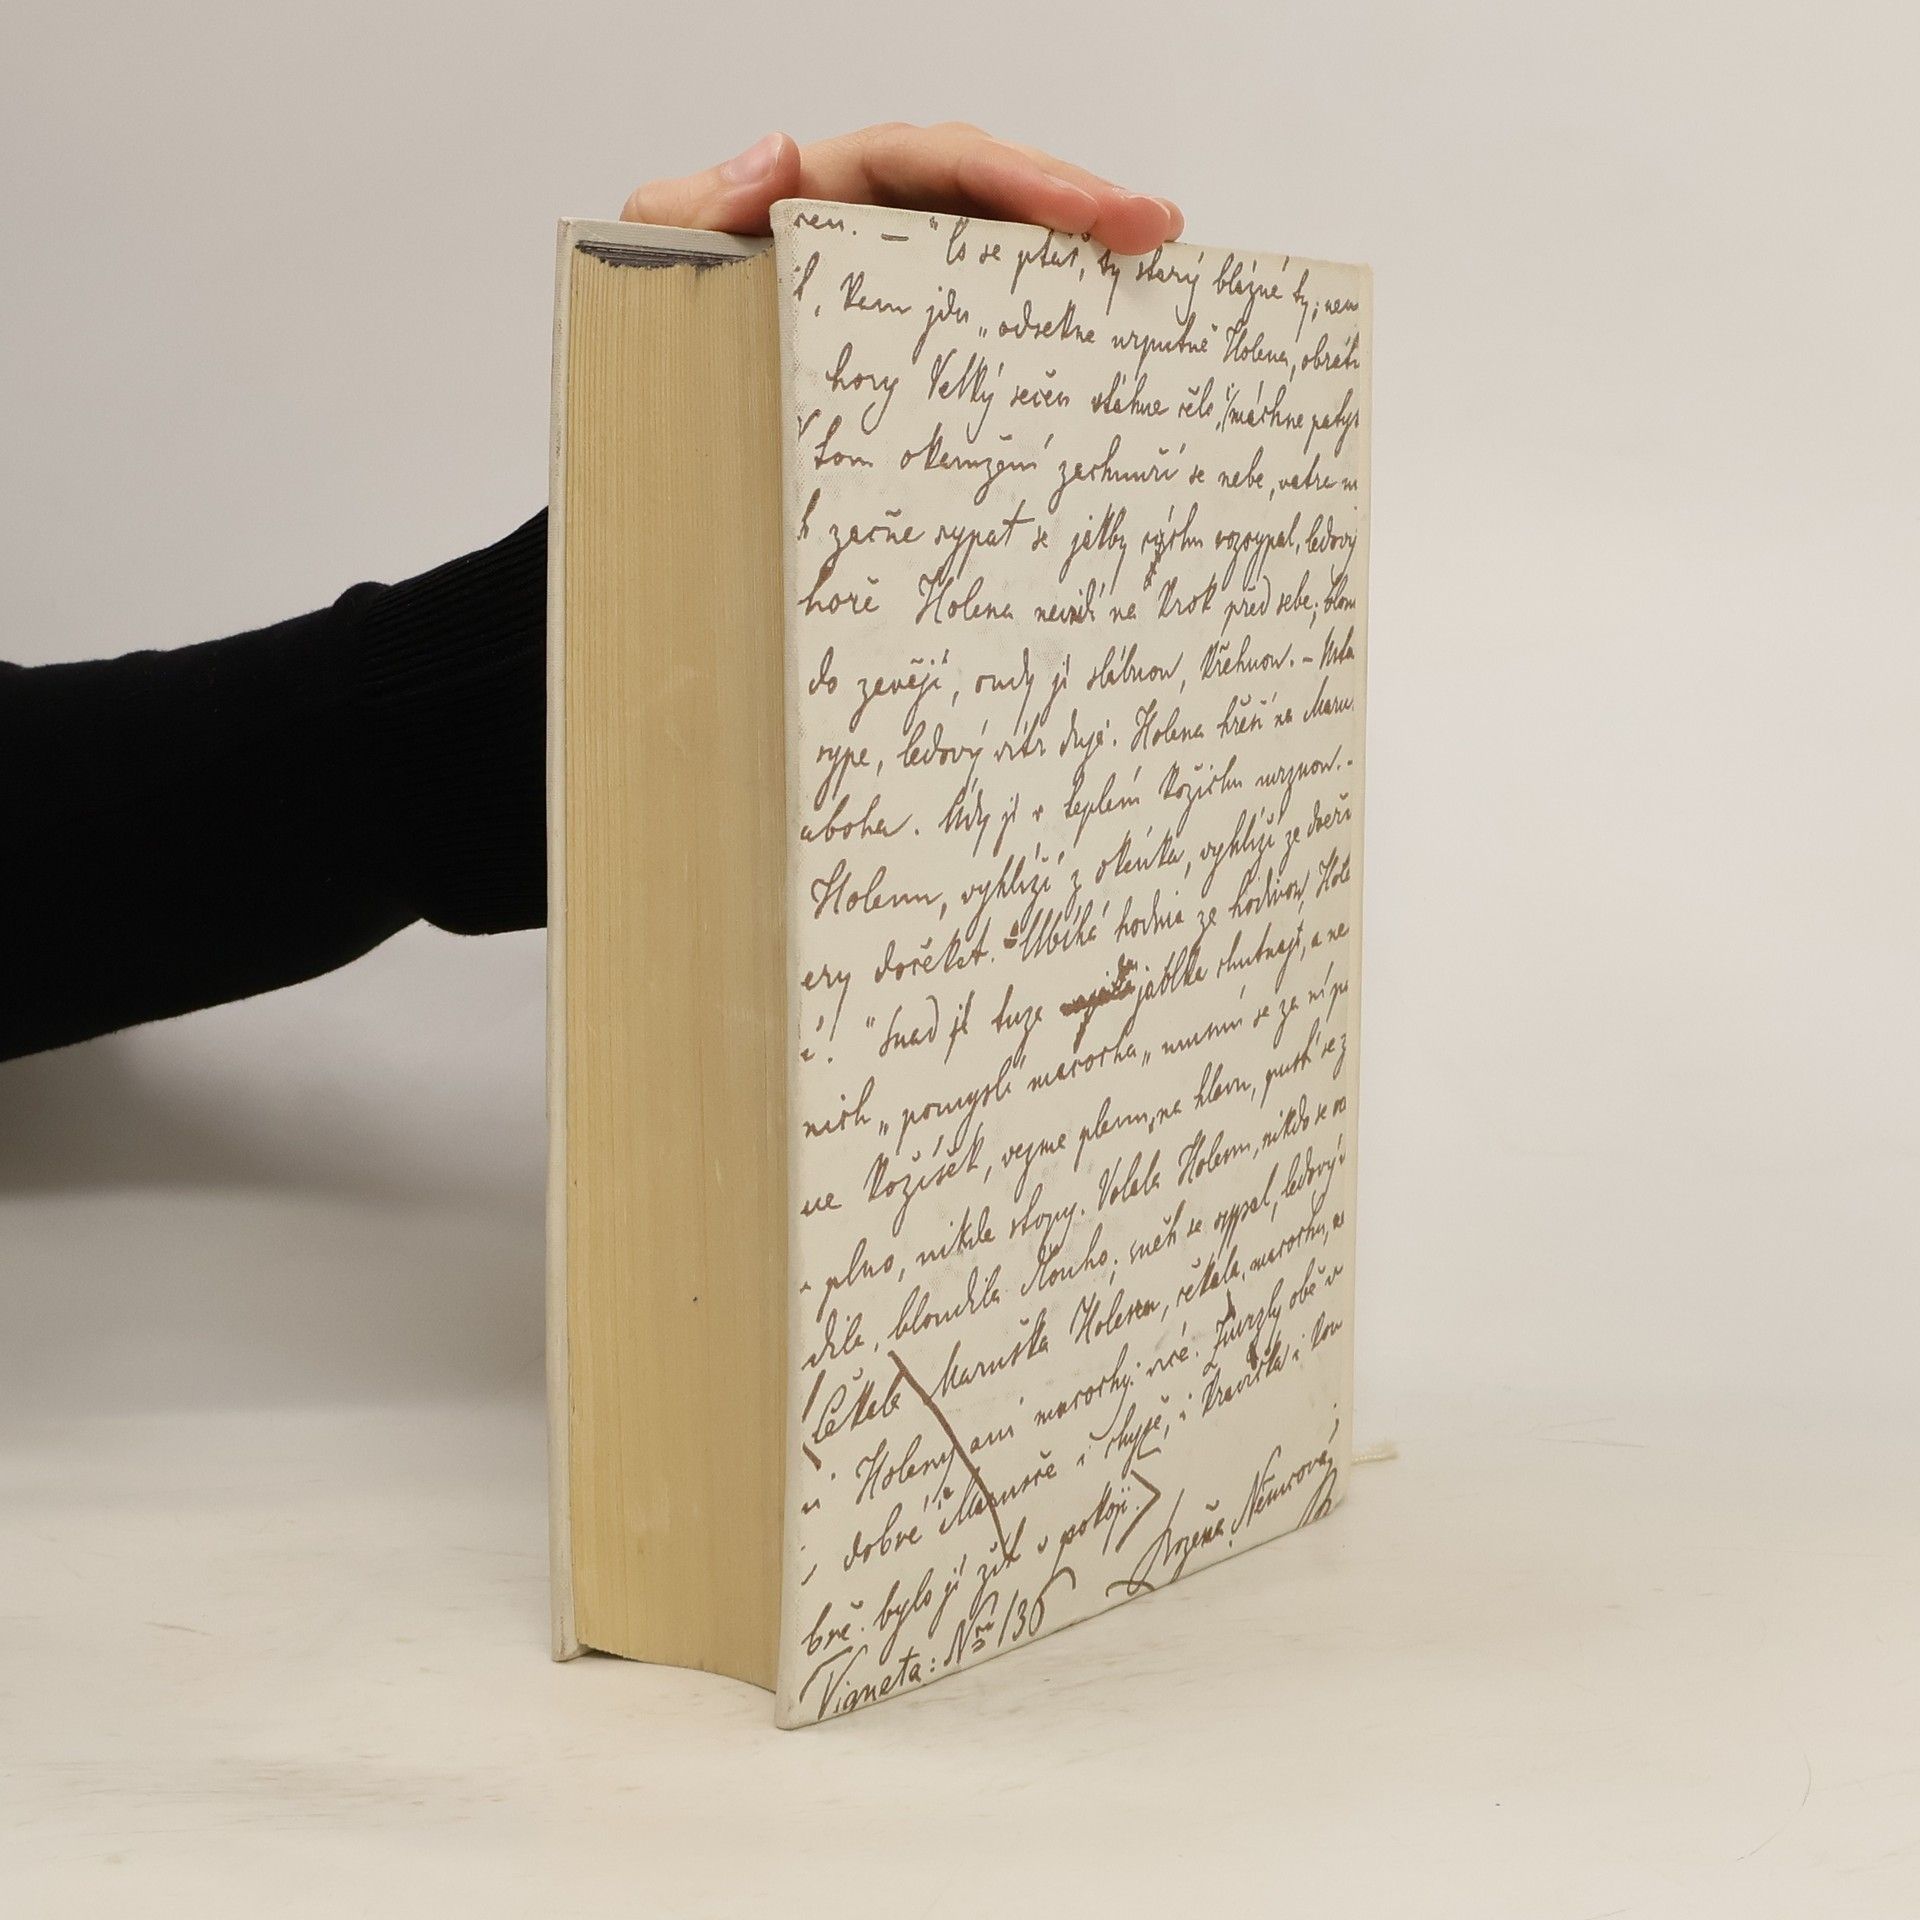 ren. — "Co se ptáš, ty starý blázne ty; nem
, kam jdu „ odsekne urputně Holena, obrátí
hory Velký sečen stáhne čelo, máchne patyk
tom okamžení zachmuří se nebe, vatra
začne sypat se jakby rozsypal, ledový
hoře Holena nevidí na krok před sebe; blou
do závějí, oudy jí slábnou, křehnou. –
sype, ledový vítr duje. Holena hřeší na Maru
aboha. Údy jí v teplém kožichu mrznou. –
Holenu, vyhlíží z okénka, vyhlíží ze dveří
ery dočekat. Ubíhá hodina za hodinou, Hole
"Snad jí tuze jablka chutnají, a ne
nich „ pomyslí macocha „ musím se za ní po
ne kožíšek, vezme plenu na hlavu, pustí se z
plno, nikde stopy. Volala Holenu, nikdo se
dila, bloudila dlouho; sněh se sypal, ledový
Čekala Maruška Holenu, čekala macochu,
Holeny ani macochy více. Zmrzly obě v
dobré Marušce i chyže, i kravička i kou
bře bylo jí žít v pokoji.
Božena Němcová
Vigneta: Nro 136